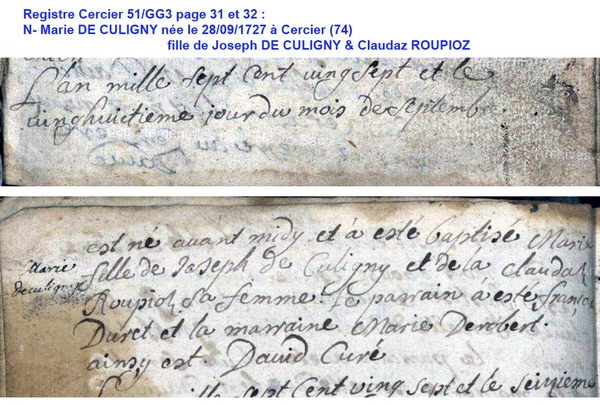 Registre Cercier 51/GG3 page 31 et 32 :
N- Marie DE CULIGNY née le 28/09/1727 à Cercier (74)
fille de Joseph DE CULIGNY & Claudaz ROUPIOZ
L'an mille sept Cent vingt sept et le
vinghuitieme jour du mois de septembre.
est né avant midy et à esté baptisé Marie
fille de Joseph de Culigny et de la Claudaz
Roupioz sa femme. le parrain à esté franc
Duret et la marraine Marie Derobert.
ainsy est. David Curé
Marie
deculigny
sept Cent vingt sept et le seizieme